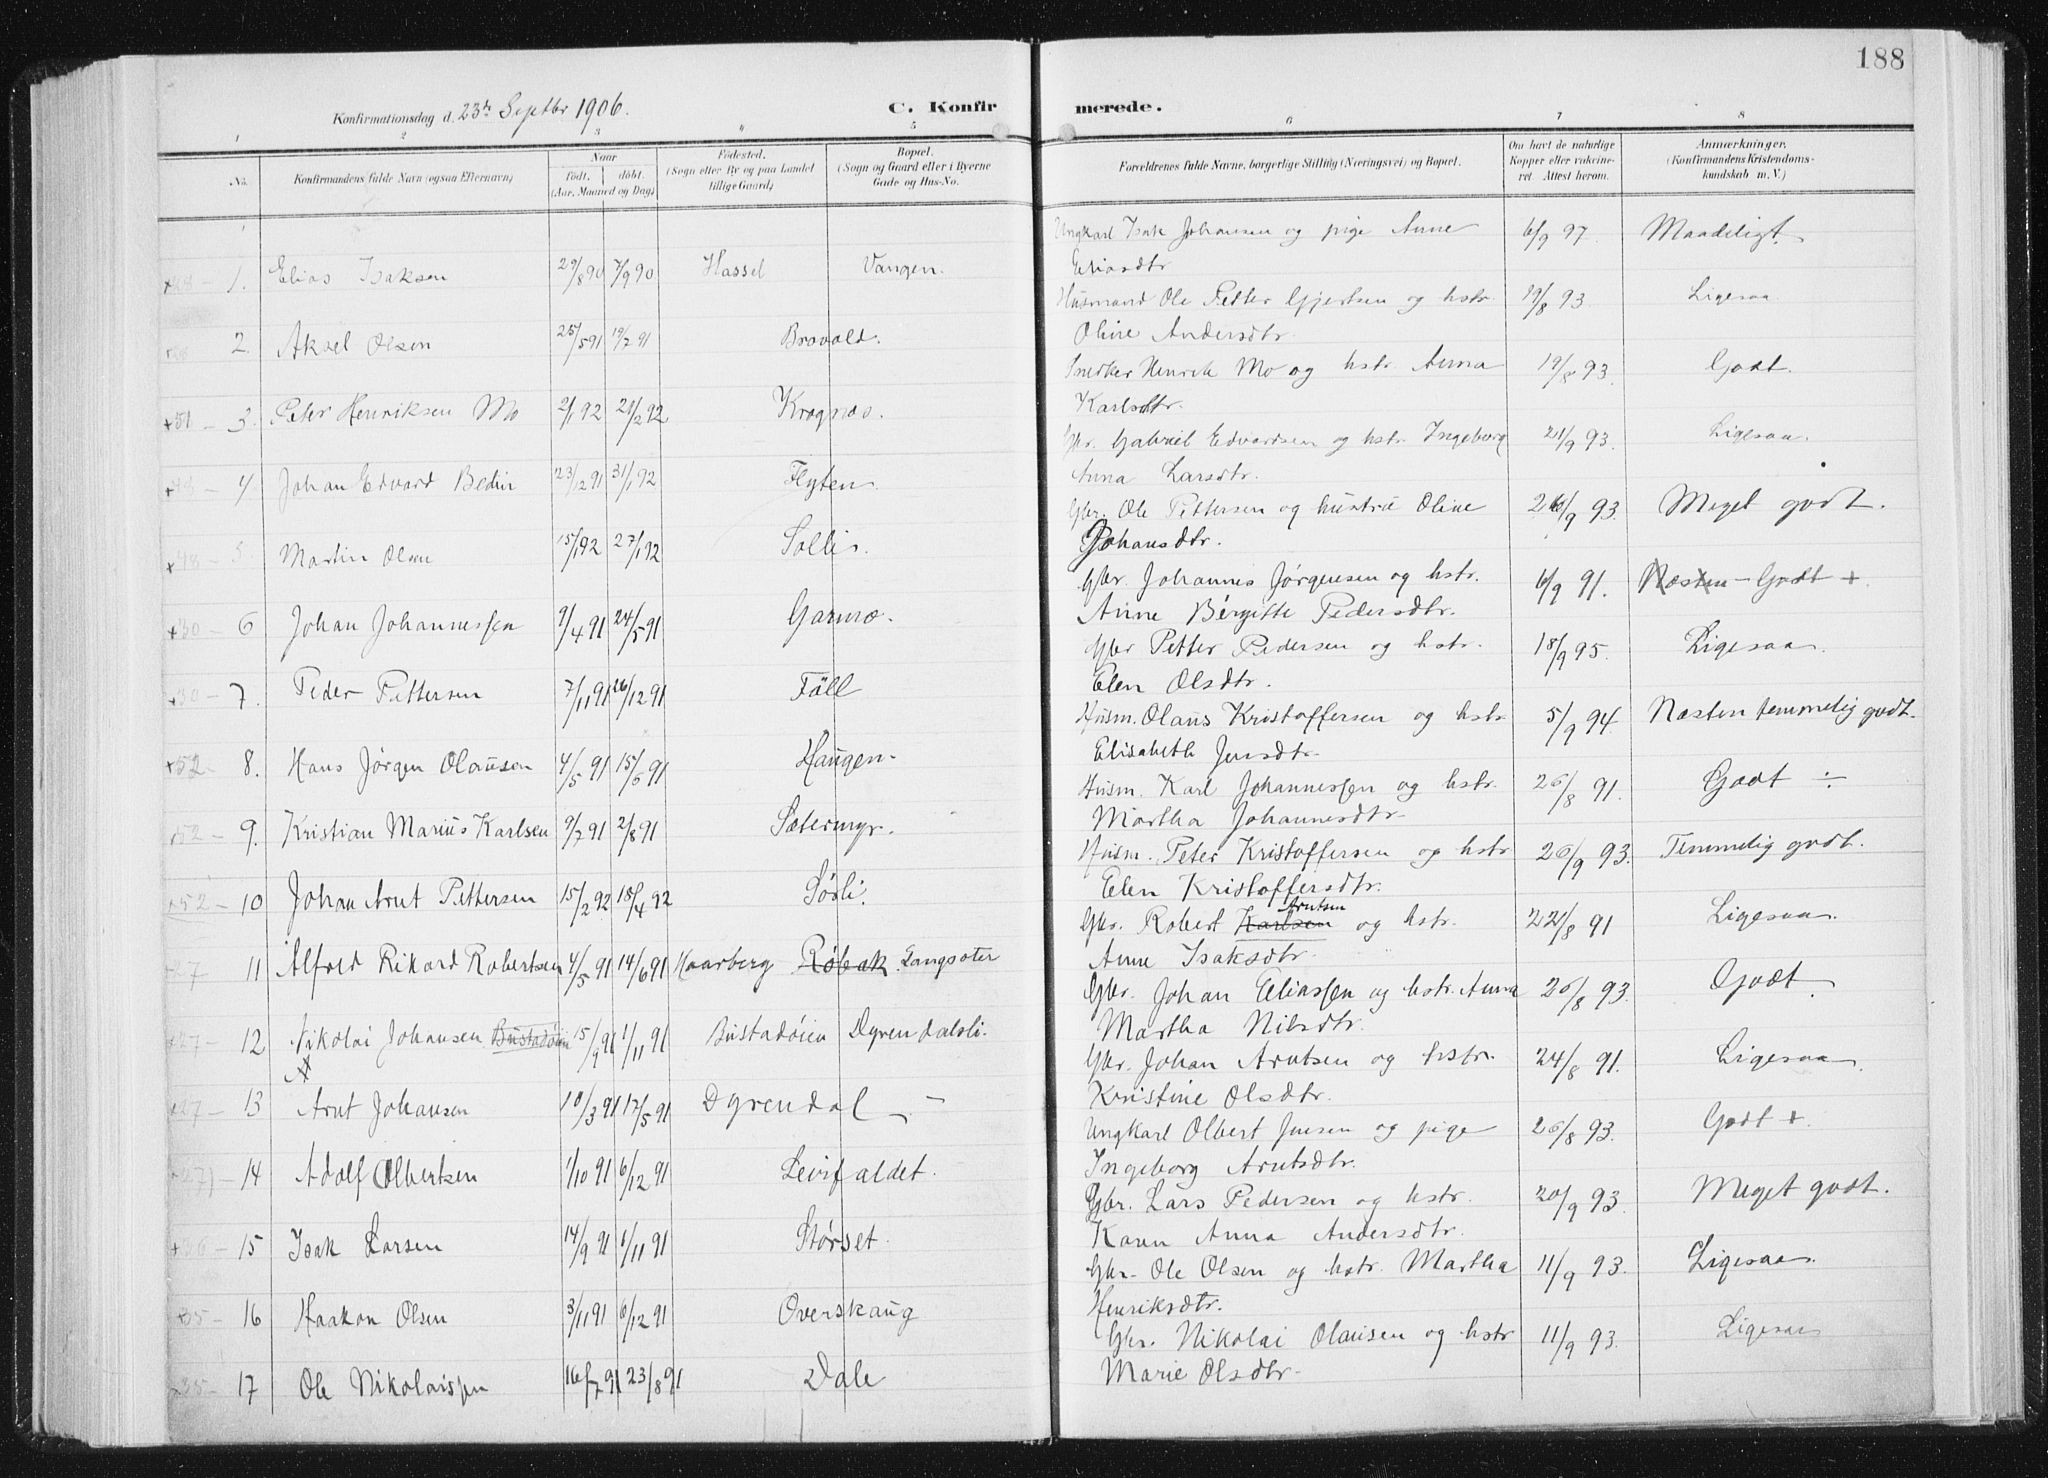 188
Konfirmationsdag d. 23de Septbr 1906.
C. Konfir merede.
1 2 3 4 5 6 7 8
No. Konfirmandens fulde Navn (ogsaa Efternavn) Naar født. døbt. (Aar, Maaned og Dag) Fødested. (Sogn eller By og paa Landet tillige Gaard) Bopæl. (Sogn og Gaard eller i Byerne Gade og Hus-No. Forældrenes fulde Navne, borgerlige Stilling (Næringsvei) og Bopæl. Om havt de naturlige Kopper eller vaccineret. Attest herom. Anmærkninger. (Konfirmandens Kristendomskundskab m. V.)
1. Elias Isaksen 29/8 90 7/9 90 Hassel Vangen. Ungkarl Isak Johansen og pige Anne 6/9 97. Maadeligt.
Eliasdtr
2. Aksel Olsen 25/5 91 19/7 91 Brovold. Husmand Ole Petter Gjertsen og hstr. 19/8 93. Ligesaa
Oline Andersdtr.
+51 - 3. Peter Henriksen Mo 2/1 92 21/2 92 Krognæs. Snedker Henrik Mo og hstr. Anna 19/8 93. Godt.
Karlsdtr.
+48 - 4 Johan Edvard Bedin 23/12 91 31/1 92 Flyten. Gbr. Gabriel Edvardsen og hstr Ingeborg 21/9 93. Ligesaa.
Anna Larsdtr.
+48 - 5 Martin Olsen 15/1 92 27/1 92 Solli. Gbr. Ole Pettersen og hustru Oline 26/9 93. Meget godt.
Johansdtr.
+30 - 6 Johan Johannessen 9/4 91 24/5 91 Garmo. Gbr. Johannes Jørgensen og hstr. 6/9 91. Næsten - Godt +
Anne Bergitte Pedersdtr.
+30 - 7. Peder Pettersen 7/11 91 26/12 91 Fall Gbr Petter Pedersen og hstr. 18/9 95. Ligesaa.
Elen Olsdtr.
+52 - 8. Hans Jørgen Olausen 4/5 91 15/6 91 Haugen. Husm. Olaus Kristoffersen og hstr 5/9 94. Næsten temmelig godt.
Elisabeth Jensdtr.
+52 - 9. Kristian Marius Karlsen 9/7 91 2/8 91 Sætermyr. Husm. Karl Johannessen og hstr. 26/8 91. Godt ÷
Martha Johannesdtr.
+52 - 10 Johan Arnt Pettersen 15/2 92 18/4 92 Sørli. Husm. Peter Kristoffersen og hstr 26/9 93. Temmelig godt.
Elen Kristoffersdtr.
+27 11 Alfred Rikard Robertsen 4/5 91 14/6 91 Haarberg Röbak Langsæter Gbr. Robert Karlsen Arntsen og hstr. 22/8 91 Ligesaa.
Anne Isaksdtr.
+27 - 12 Nikolai Johansen Bustadøien 15/9 91 1/11 91 Bustadøien Dyrendalsli. Gbr. Johan Eliassen og hstr. Anna 26/8 93. Godt.
Martha Nilsdtr.
+27 - 13 Arnt Johansen 10/3 91 17/5 91 Dyrendal - Gbr. Johan Arntsen og hstr. 24/8 91. Ligesaa
Kristine Olsdtr.
+27) - 14 Adolf Olbertsen 1/10 91 6/12 91 Leirfaldet. Ungkarl Olbert Jensen og pige 26/8 93. Godt +.
Ingeborg Arntsdtr.
+36 - 15 Isak Larsen 14/9 91 1/11 91 Størset. Gbr. Lars Pedersen og hstr. 20/9 93. Meget godt.
Karen Anna Andersdtr.
+35 - 16 Haakon Olsen 3/11 91 6/12 91 Overskaug Gbr. Ole Olsen og hstr. Martha 11/9 93. Ligesaa.
Henriksdtr.
+35 - 17 Ole Nikolaissen 16/7 91 23/8 91 Dale Gbr. Nikolai Olausen og hstr 11/9 93. Ligesaa
Marie Olsdtr.